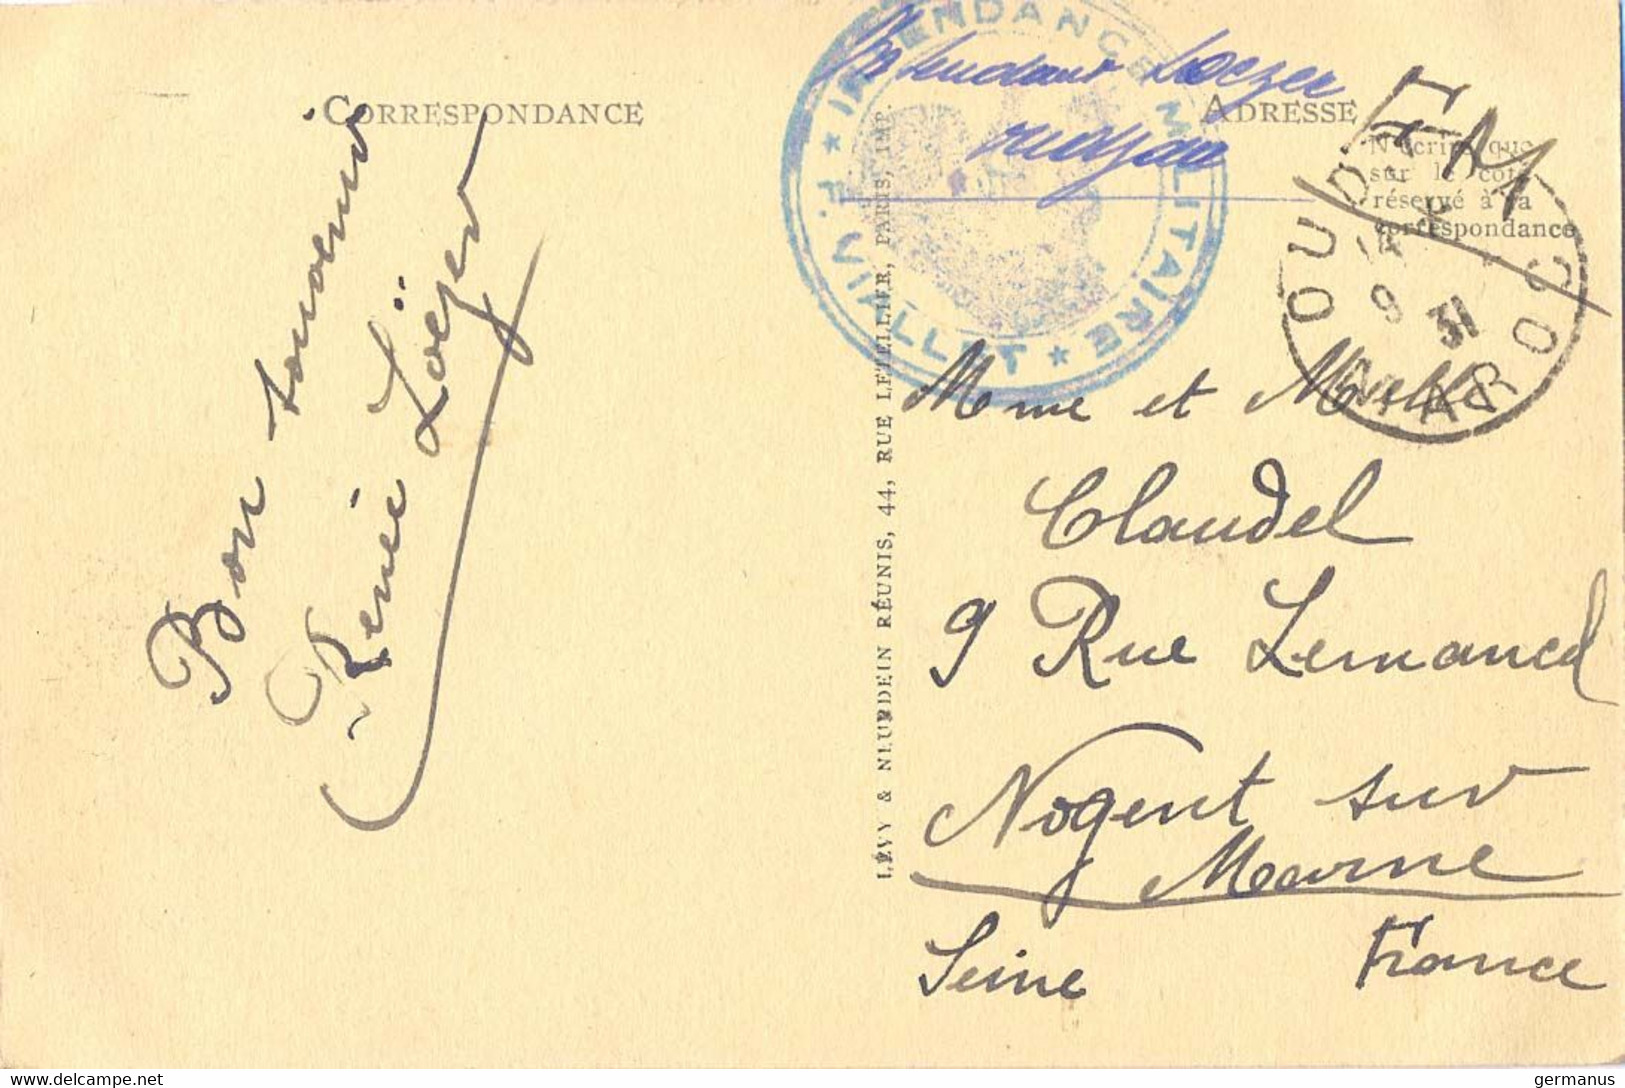 CORRESPONDANCE
Bon souvenir
Renée Loëzer
LÉVY & NEURDEIN RÉUNIS, 44, RUE LETELLIER, PARIS, IMP.
★ INTENDANCE MILITAIRE ★
F. VIALLET
Intendant Loezer
ADRESSE
F M
N'écrire que
sur le côté
réservé à la
correspondance
OUDJDA
9 31
MAROC
Mme et Melle
Claudel
9 Rue Lemancel
Nogent sur
Marne
Seine France
www.delcampe.net
germanus